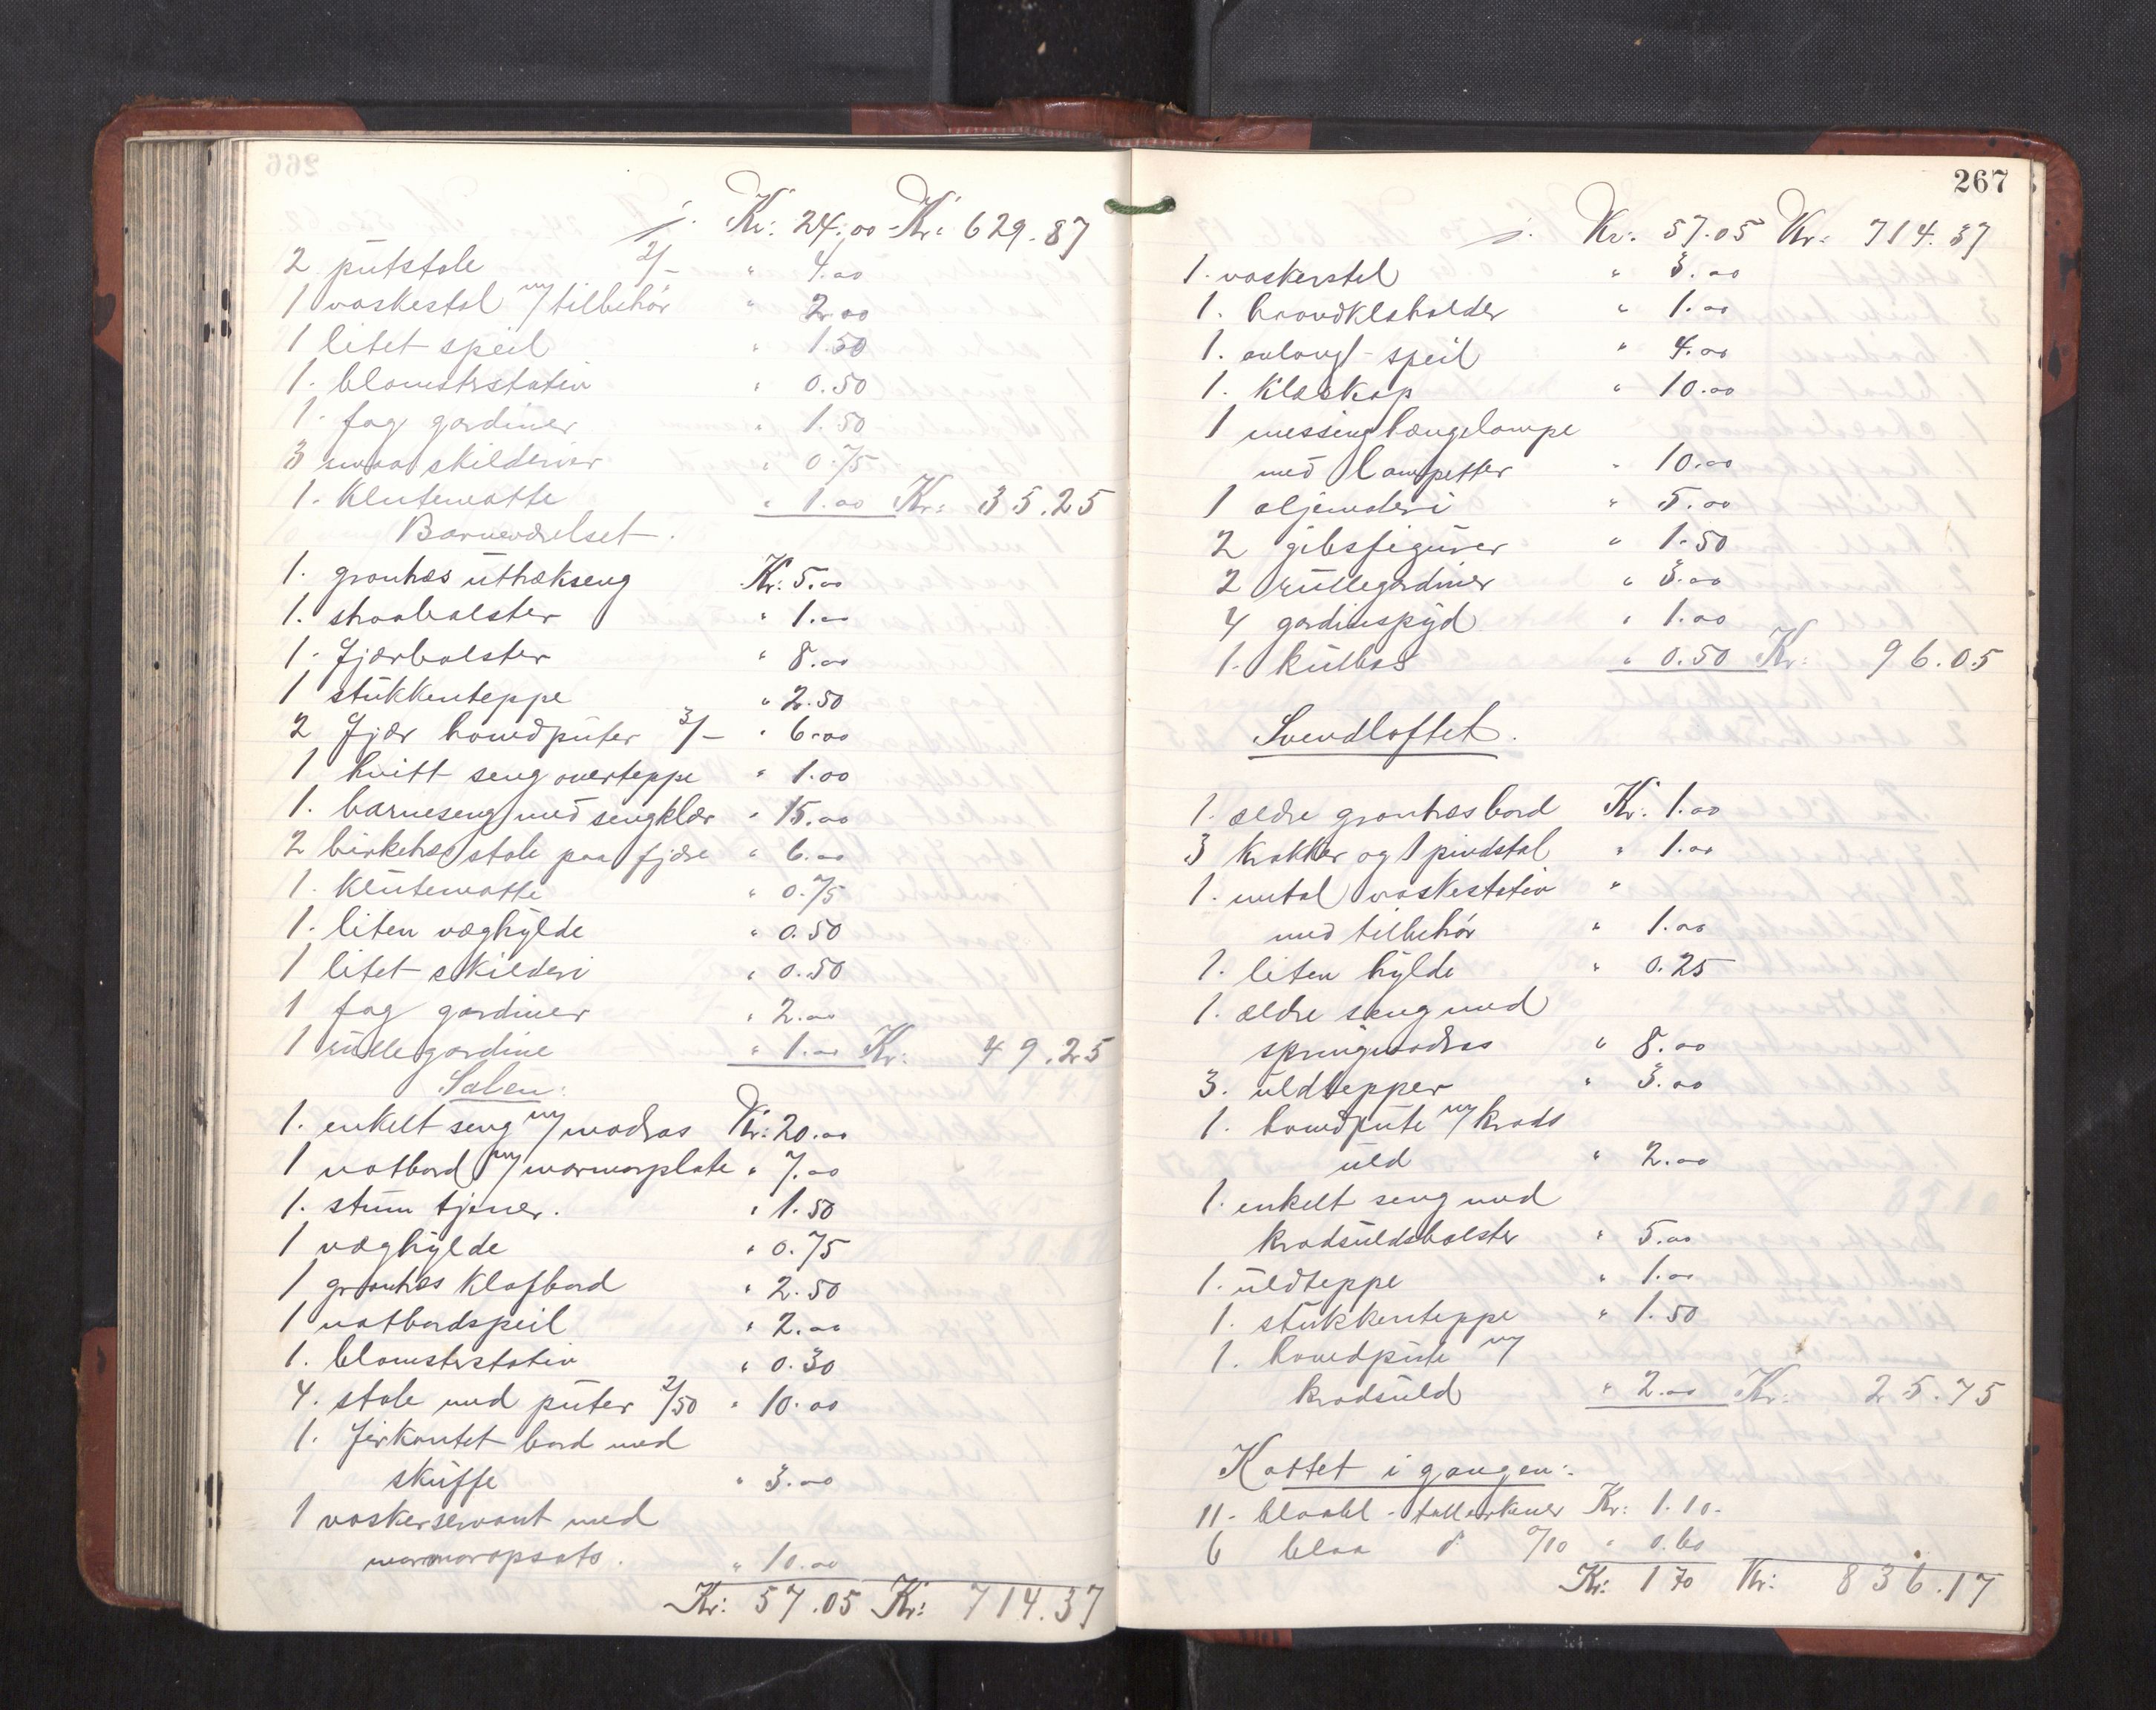 Kr: 24.00 Kr: 629.87
2 putstole 2/- " 4.00
1 vaskestol m/ tilbehör " 2.00
1 litet speil " 1.50
1. blomsterstativ " 0.50
1. fag gardiner " 1.50
3 smaa skilderier " 0.75
1. klutematte " 1.00 Kr: 35.25
Barneværelset.
1. grantræs uttrækseng Kr: 5.00
1. straabolster " 1.00
1. fjærbolster " 8.00
1 stukkenteppe " 2.50
2 fjær hovedputer 3/- " 6.00
1 hvitt seng overteppe " 1.00
1. barneseng med sengklær " 15.00
2 birketræs stole paa fjære " 6.00
1. klutematte " 0.75
1. liten væghylde " 0.50
1 litet skilderi " 0.50
1 fag gardiner " 2.00
1 rullegardine " 1.00 Kr: 49.25
Salen:
1. enkelt seng m/ madras Kr: 20.00
1 natbord m/ marmorplate " 7.00
1. stum tjener. " 1.50
1 væghylde " 0.75
1 grantræs klafbord " 2.50
1 natbordspeil " 2.00
1. blomsterstativ " 0.30
4. stole med puter 2/50 " 10.00
1. firkantet bord med
skuffe " 3.00
1 vaskerservant med
marmoropsats. " 10.00
Kr: 57.05 Kr: 714.37
267
Kr: 57.05 Kr: 714.37
1. vaskerstel " 3.00
1. haandklæholder " 1.00
1. avlangt speil " 4.00
1. klæskap " 10.00
1 messing hængelampe
med lampetter " 10.00
1 oljemaleri " 5.00
2 gibsfigurer " 1.50
2 rullegardiner " 3.00
4 gardinspyd " 1.00
1. kulbas " 0.50 Kr: 96.05
Svendloftet.
1. ældre grantræs bord Kr: 1.00
3 krakker og 1 pindstol " 1.00
1. metal vaskestativ "
med tilbehör " 1.00
1. liten hylde " 0.25
1. ældre seng med
springmadras " 8.00
3. uldtepper " 3.00
1. hovedpute m/ krads
uld " 2.00
1. enkelt seng med
kradsuldsbolster " 5.00
1. uldteppe " 1.00
1. stukkenteppe " 1.50
1. hovedpute m/
kradsuld " 2.00 Kr: 25.75
Kottet i gangen:
11. blaabl. tallerkener Kr: 1.10.
6 blaa d 0/10 " 0.60
Kr: 1 70 Kr: 836.17